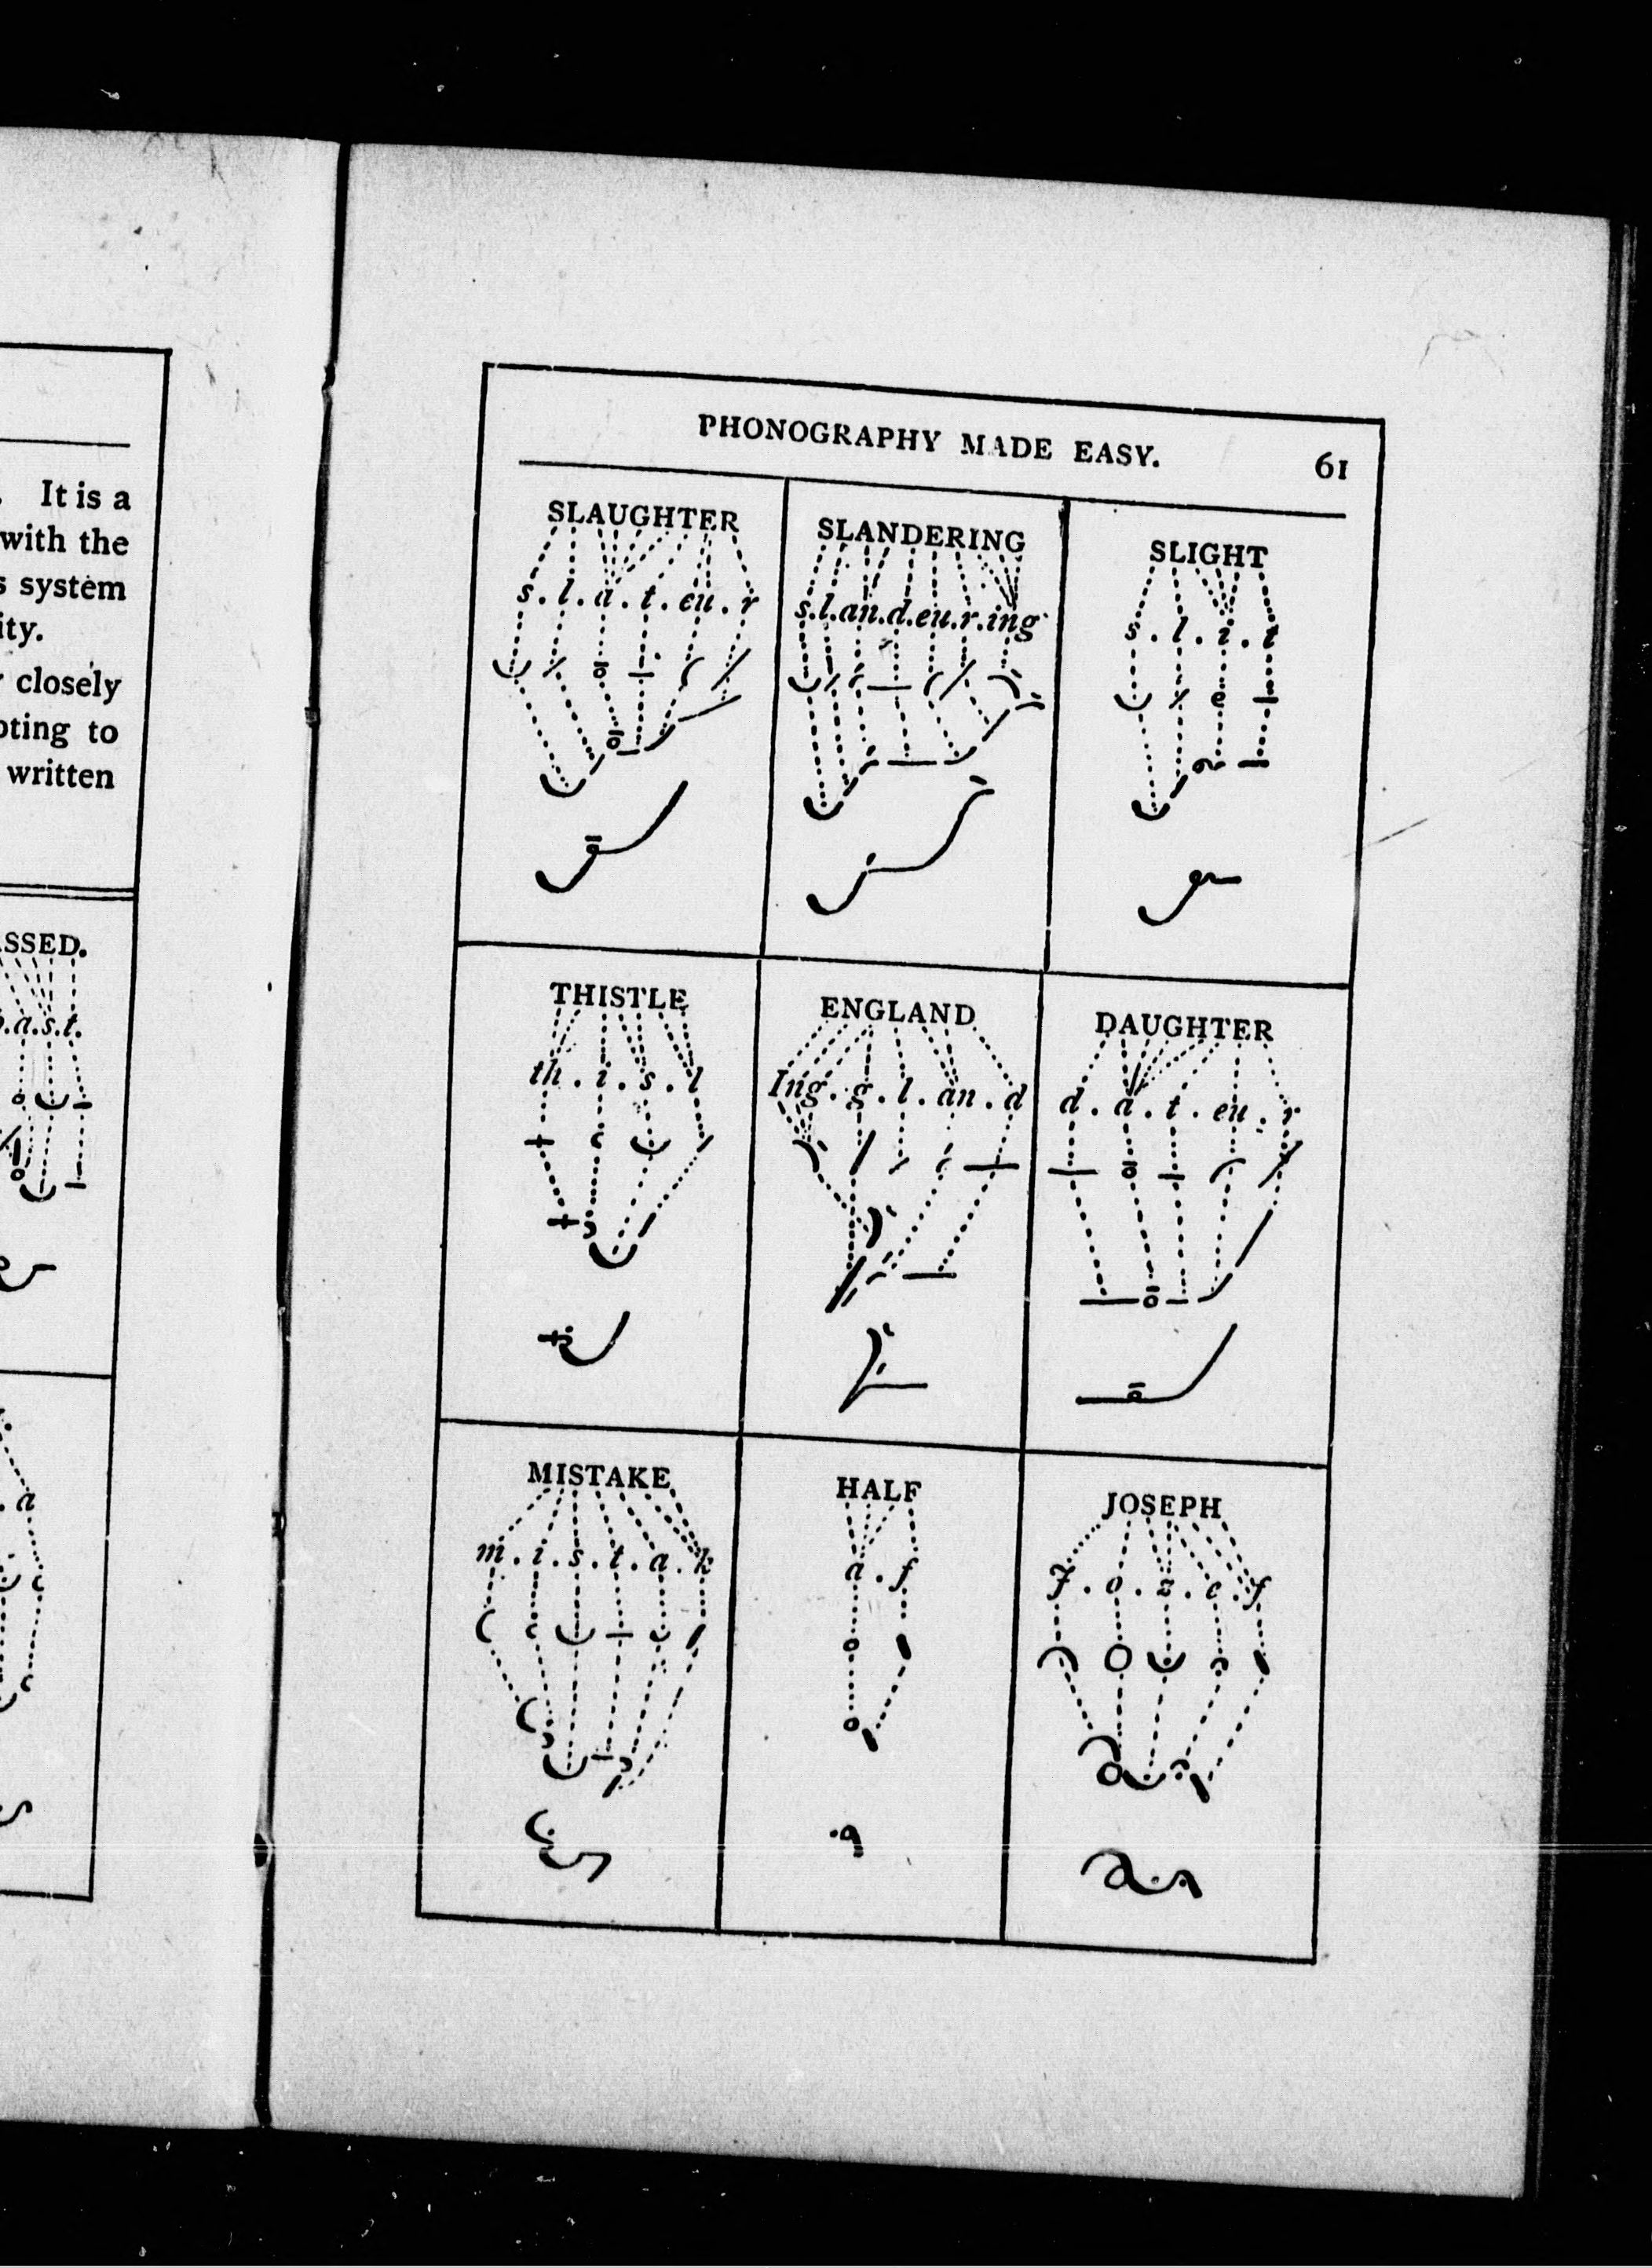 It is a
with the
system
closely
to
written
PHONOGRAPHY MADE EASY. 61
SLAUGHTER
s.l.a.t.eu.r
SLANDERING
s.l.an.d.eu.r.ing
SLIGHT
s.l.i.t
THISTLE
th.i.s.l
ENGLAND
Ing.g.l.an.d
DAUGHTER
d.a.t.eu.r
MISTAKE
m.i.s.t.a.k
HALF
a.f
JOSEPH
J.o.z.e.f